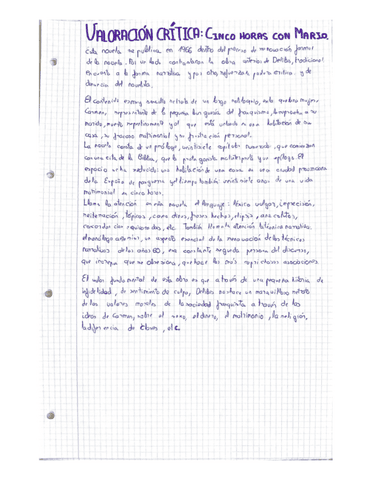 VALORACIÓN CRÍTICA: CINCO HORAS CON MARIO.
Esta novela se publica en 1966 dentro del proceso de renovación formal
de la novela. Por un lado la obra anterior de Delibes, tradicional
en cuanto a la forma narrativa y por otro su poder crítico y de
denuncia del novelista.
El contenido es muy sencillo: se trata de un largo soliloquio, en la que una mujer
Carmen, representante de la pequeña burguesía del franquismo, le reprocha a su
marido, muerto repentinamente y al que está velando en una habitación de su
casa, su fracaso matrimonial y su frustración personal.
La novela consta de un prólogo, veintisiete capítulos que comienzan
con una cita de la Biblia, que la protagonista y un epílogo. El
espacio es reducido: una habitación de una casa en una ciudad provinciana
de la España de posguerra y el tiempo también veintisiete años de una vida
matrimonial en cinco horas.
Llama la atención en esta novela el lenguaje: léxico vulgar, imprecisión,
reiteración, tópicos, como dices, frases hechas, elipsis, anacolutos,
etc. También llama la atención la técnica narrativa.
el monólogo, un aspecto esencial de la renovación de las técnicas
narrativas de los años 60, una constante segunda persona del discurso,
que increpa que no obsesiona, que hace las más asociaciones.
El valor fundamental de esta obra es que a través de una pequeña historia de
infidelidad, de sentimiento de culpa, Delibes nos hace un maravilloso retrato
de los valores morales de la sociedad franquista a través de las
ideas de Carmen, sobre el sexo, el dinero, el matrimonio, la religión,
la diferencia de clases, etc.